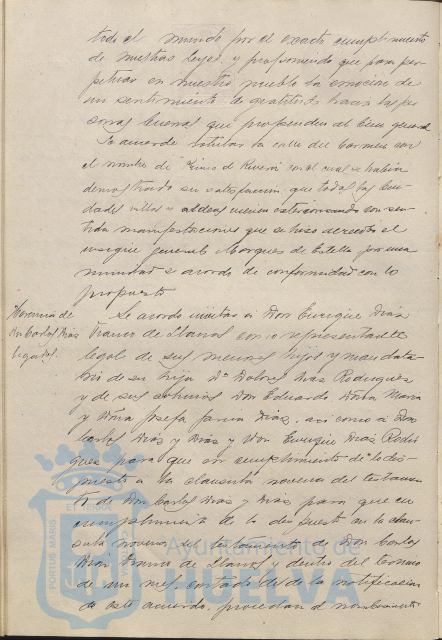 todo el mundo por el exacto cumplimiento
de nuestras leyes y proponiendo que para per-
petuar en nuestro pueblo la emoción de
un sentimiento de gratitud hacia las per
sonas buenas que propenden al bien general
Se acuerde titular la calle del Carmen con
el nombre de Primo de Rivera con el cual se habia
demostrado su satisfaccion que todas las ciu-
dades villas y aldeas vienen exteriorizando con sen-
tida manifestaciones que se hizo acreedor el
insigne general Marques de Estella por una
nimidad se acordo de conformidad con lo
propuesto
Herencia de
Don Carlos Dias
Legados.
Se acordo invitar a Don Enrique Dias
Franco de Llanos como representante
legal de sus menores hijos y mandata
rio de su hija Dª Dolores Dias Rodriguez
y de sus sobrinos Don Eduardo Doña Maria
y Doña Josefa Garcia Dias, asi como a Don
Carlos Dias y Dias y Don Enrique Dias Rodri
guez para que en cumplimiento de lo dis-
puesto a la clausula novena del testamen
to de Don Carlos Dias y Dias para que en
cumplimiento de lo dispuesto en la clau-
sula novena del testamento de Don Carlos
Dias Franco de Llanos y dentro del termino
de un mes, contado desde la notificacion
de este acuerdo, procedan al nombramiento
PORTUS MARIS ET TERRAE
Ayuntamiento de
HUELVA